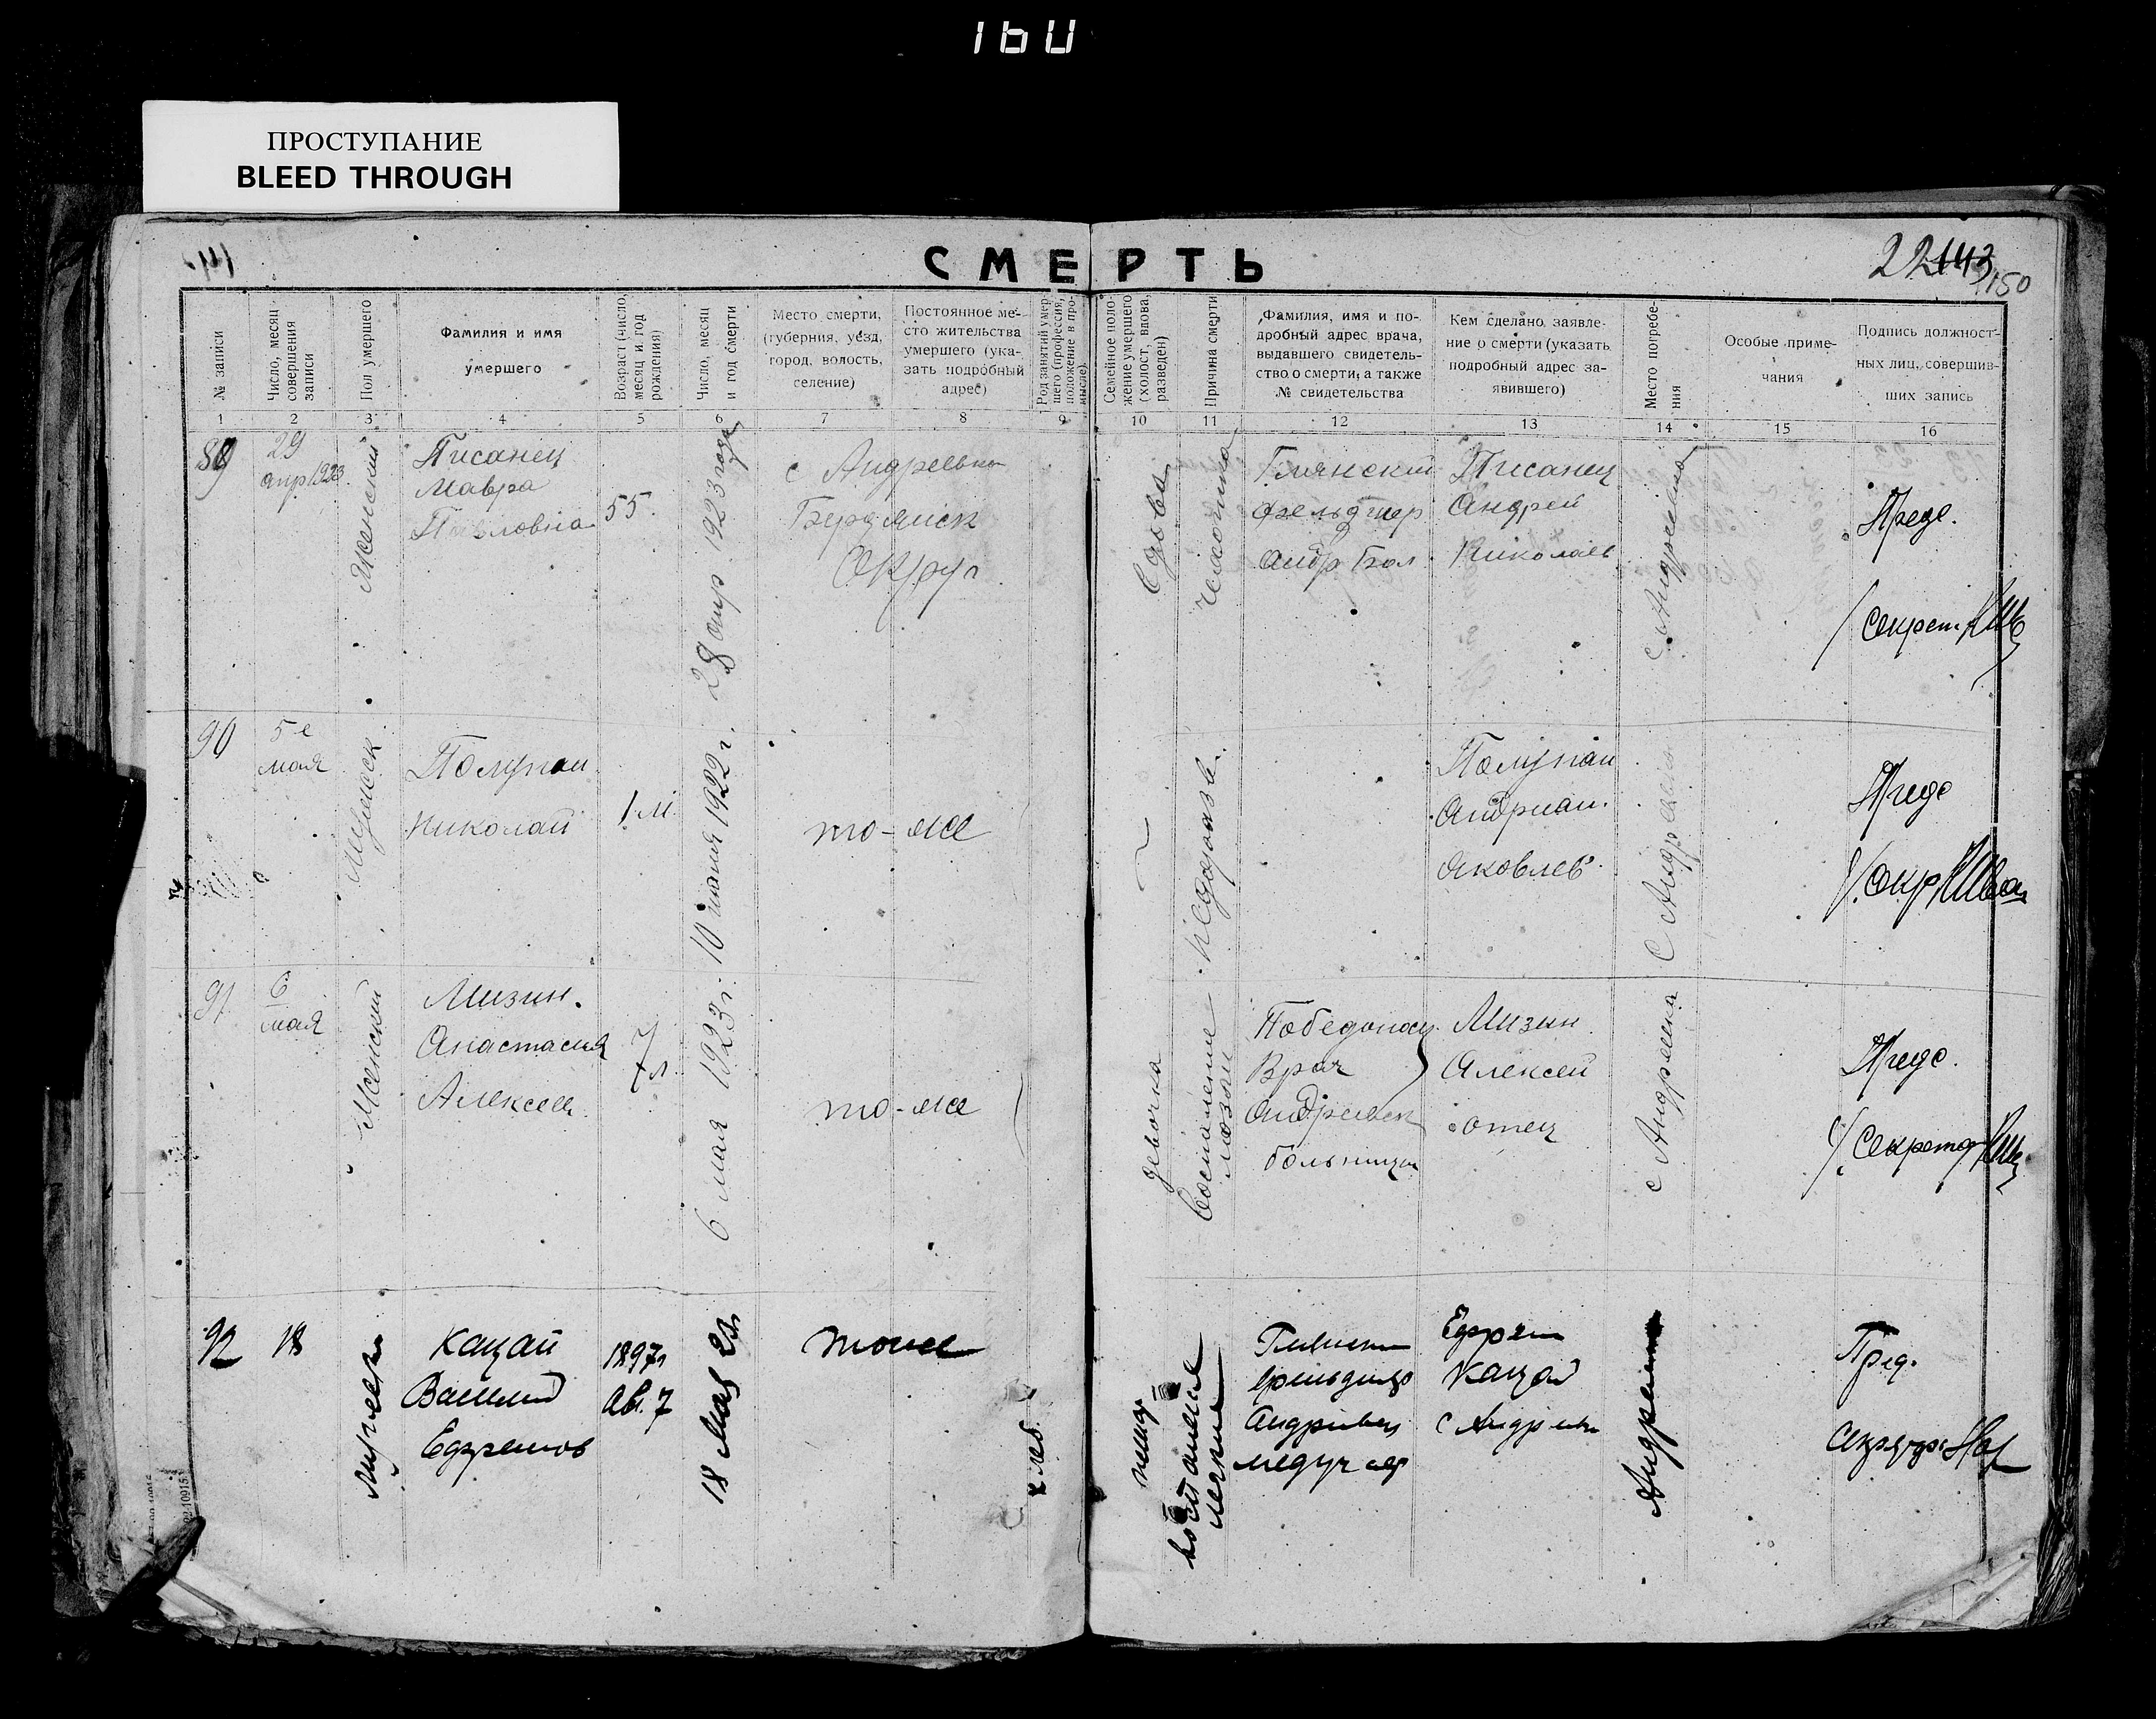 160
ПРОСТУПАНИЕ
BLEED THROUGH
СМЕРТЬ
22 143
150
№ записи
Число, месяц совершения записи
Пол умершего
Фамилия и имя
умершего
Возраст (число, месяц и год рождения)
Число, месяц и год смерти
Место смерти,
(губерния, уезд,
город, волость,
селение)
Постоянное ме-
сто жительства
умершего (ука-
зать подробный
адрес)
Род занятий умер-
шего (профессия,
положение в про-
мысле)
Семейное поло-
жение умершего
(холост, вдова,
разведен)
Причина смерти
Фамилия, имя и по-
дробный адрес врача,
выдавшего свидетель-
ство о смерти, а также
№ свидетельства
Кем сделано заявле-
ние о смерти (указать
подробный адрес за-
явившего)
Место погребе-
ния
Особые приме-
чания
Подпись должност-
ных лиц, совершив-
ших запись
1 2 3 4 5 6 7 8 9 10 11 12 13 14 15 16
89
29
апр 1923
Женский
Писанец
Мавра
Павловна
55.
28 апр. 1923 года
с Андреевка
Бердянск
Округ
Вдова
Чахотка
Глянский
фельдшер
Андр Бол.
Писанец
Андрей
Николаев
с Андреевка
Пред.
Секрет.
90
5 е
мая
Мужеск
Полупан
Николай
1 м.
10 июня 1922 г.
то-же
Полупан
Андриан.
Яковлев.
С Андреевка
Пред
Секр
91
6
мая
Женский
Мизин.
Анастасия
Алексеев.
7 л.
6 мая 1923 г.
то-же
девочка
Воспаление
мозга
Победонос.
Врач
Андреевск
больницы
Мизин
Алексей
отец
с Андреевка
Пред.
Секретар
92
18
Мужеск
Кацай
Василий
Ефремов
1897 г
Ав. 7
18 Мая 23г
тоже
хлеб.
воспаление
легких
фельдшер
Андреевск
медуч
Ефрем
Кацай
с Андреевк
Андреевка
Пред.